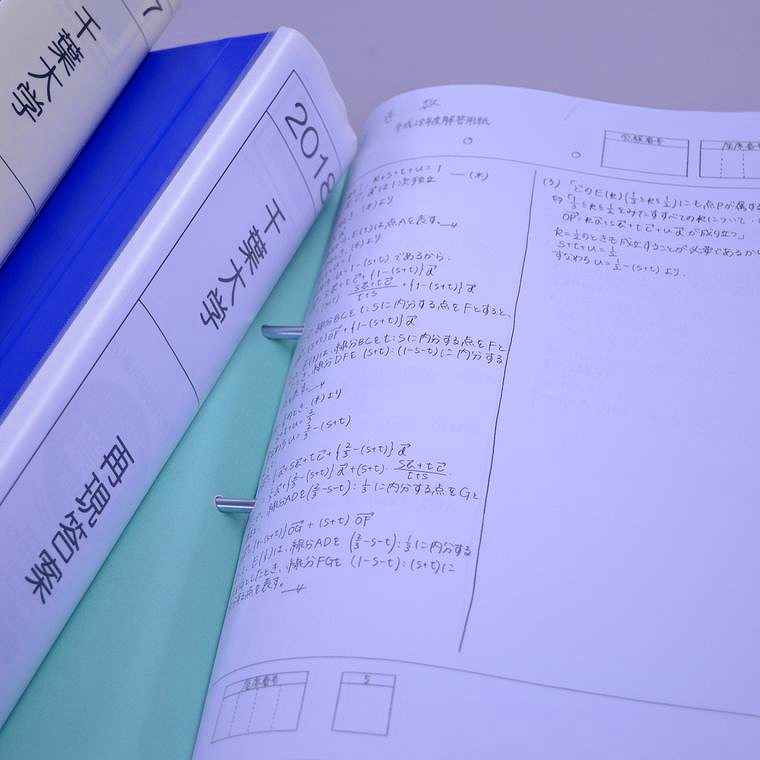 7
千葉大学
2018
千葉大学
再現答案
数
平成28年度解答用紙
受験番号
座席番号
k+s+t+u=1 ―(*)
は1次独立
(*)より
E(1)は点Aを表す。
(*)より
u=1-(s+t)であるから、
+tc+{1-(s+t)}d
sb+tc/t+s+{1-(s+t)}d
線分BCをt:sに内分する点をFとすると、
(s+t)OF+{1-(s+t)}d
E(0)は、線分BCをt:sに内分する点をFと
線分DFを(s+t):(1-s-t)に内分する
を表す。
(*)より
s+t+u=2/3
すなわちu=2/3-(s+t)
a+sb+tc+{2/3-(s+t)}d
a+{2/3-(s+t)}d+(s+t)・sb+tc/t+s
線分ADを(2/3-s-t):1/3に内分する点をGと
{1-(s+t)}OG+(s+t)OF
E(1/3)は、線分ADを(2/3-s-t):1/3に内分する
としたとき、線分FGを(1-s-t):(s+t)に
する点を表す。
(3)「どのE(k)(1/3≦k≦1/2)にも点Pが属する
⇔「1/3≦k≦1/2をみたすすべてのkについて、
OP=ka+sb+tc+udが成り立つ」
k=1/2のときも成立することが必要であるから
s+t+u=1/2
すなわちu=1/2-(s+t)より、
座席番号
5